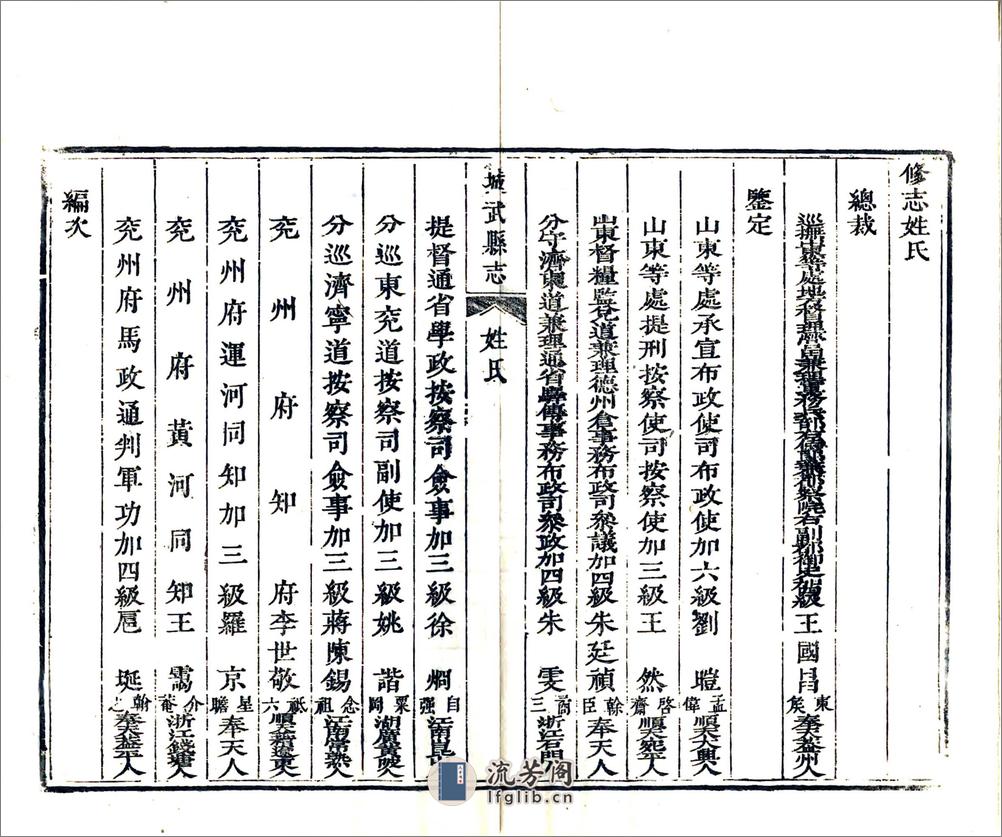 修志姓氏
總裁
巡撫山東等處地方督理營田兼理
王國昌東侯奉天蓋州人
鑒定
山東等處承宣布政使司布政使加六級劉暟孟偉順天大興人
山東等處提刑按察使司按察使加三級王然啓齋順天宛平人
山東督糧監兌道兼理德州倉事務布政司叅議加四級朱廷禎幹臣奉天人
分守濟東道兼理通省驛傳事務布政司叅政加四級朱雯三浙江石門人
城武縣志
姓氏
提督通省學政按察司僉事加三級徐炯自强江南崑山
分巡東兖道按察司副使加三級姚諧粟岡湖廣人
分巡濟寧道按察司僉事加三級蔣陳錫念祖江南常熟人
兖州府知府李世敬祗六順天人
兖州府運河同知加三級羅京星瞻奉天人
兖州府黃河同知王靄介菴浙江錢塘人
兖州府馬政通判軍功加四級扈埏翰之奉天蓋平人
編次
流芳阁
lfglib.cn